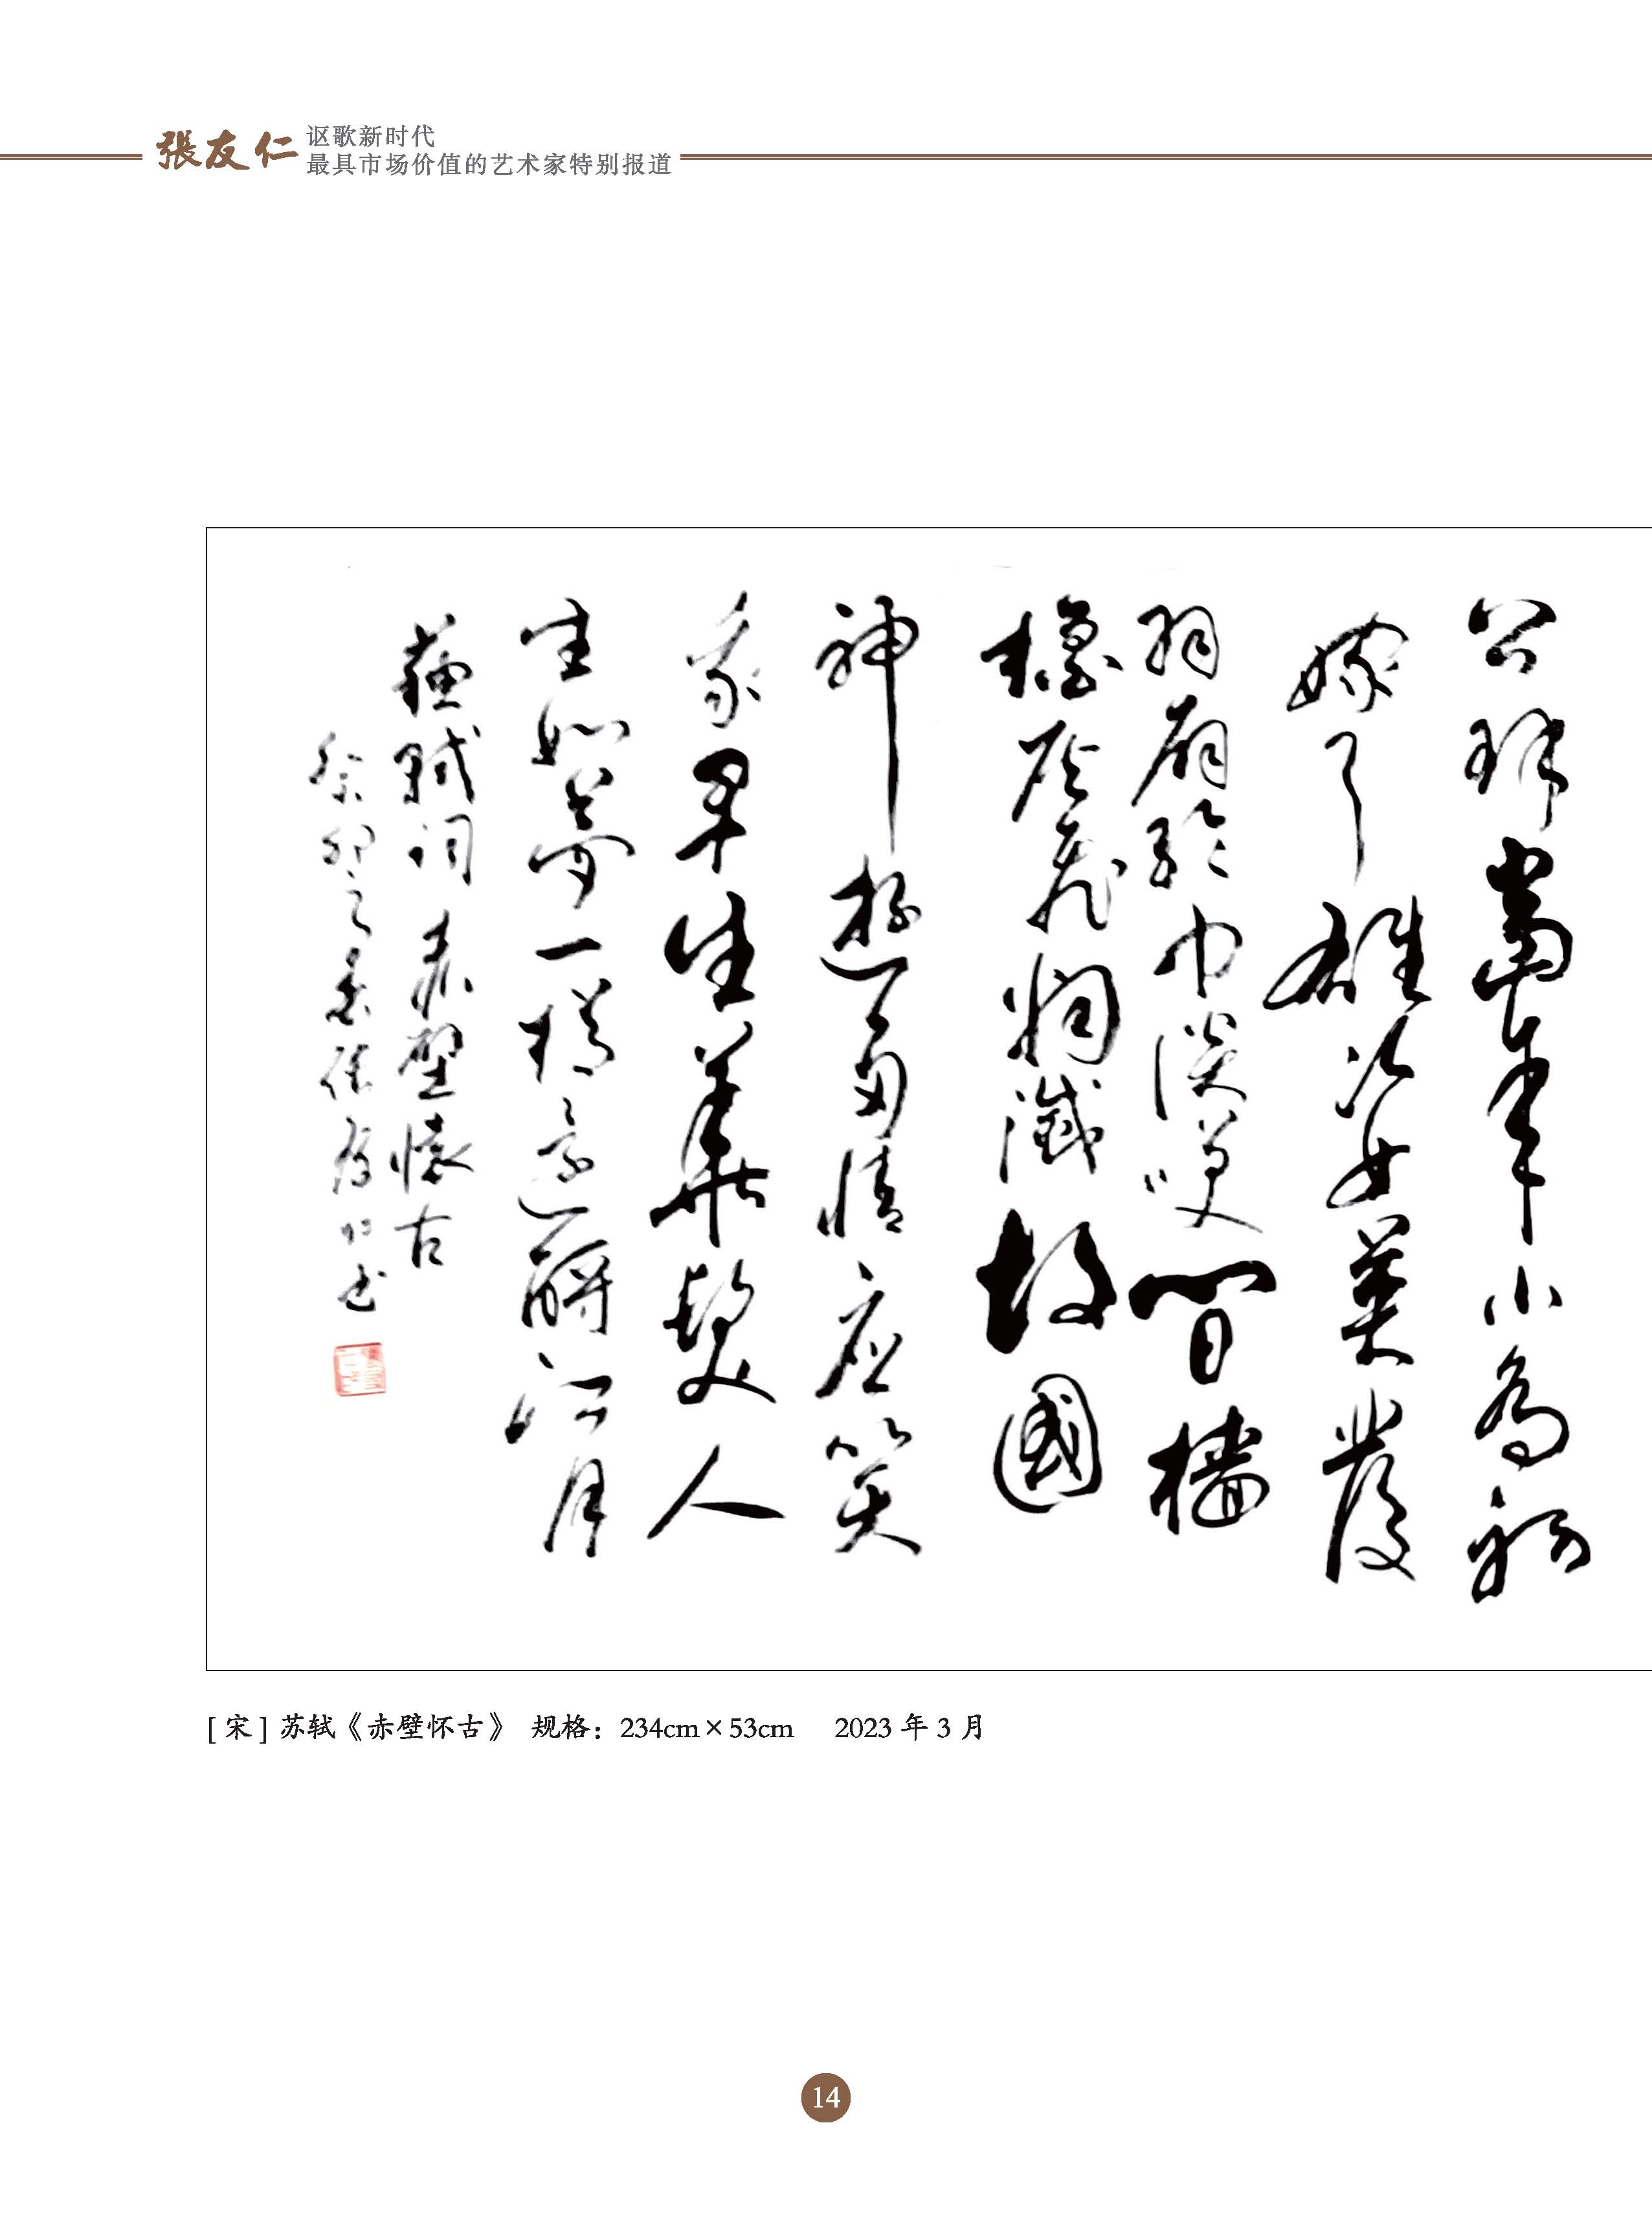 張友仁
讴歌新时代
最具市场价值的艺术家特别报道
公瑾當年小喬初
嫁了雄姿英發
羽扇綸巾談笑間檣
櫓灰飛烟滅故國
神遊多情應笑
我早生華髮人
生如夢一樽還酹江月
蘇軾詞赤壁懷古
癸卯之春張友仁书
[宋] 苏轼《赤壁怀古》 规格：234cm×53cm 2023 年 3 月
14